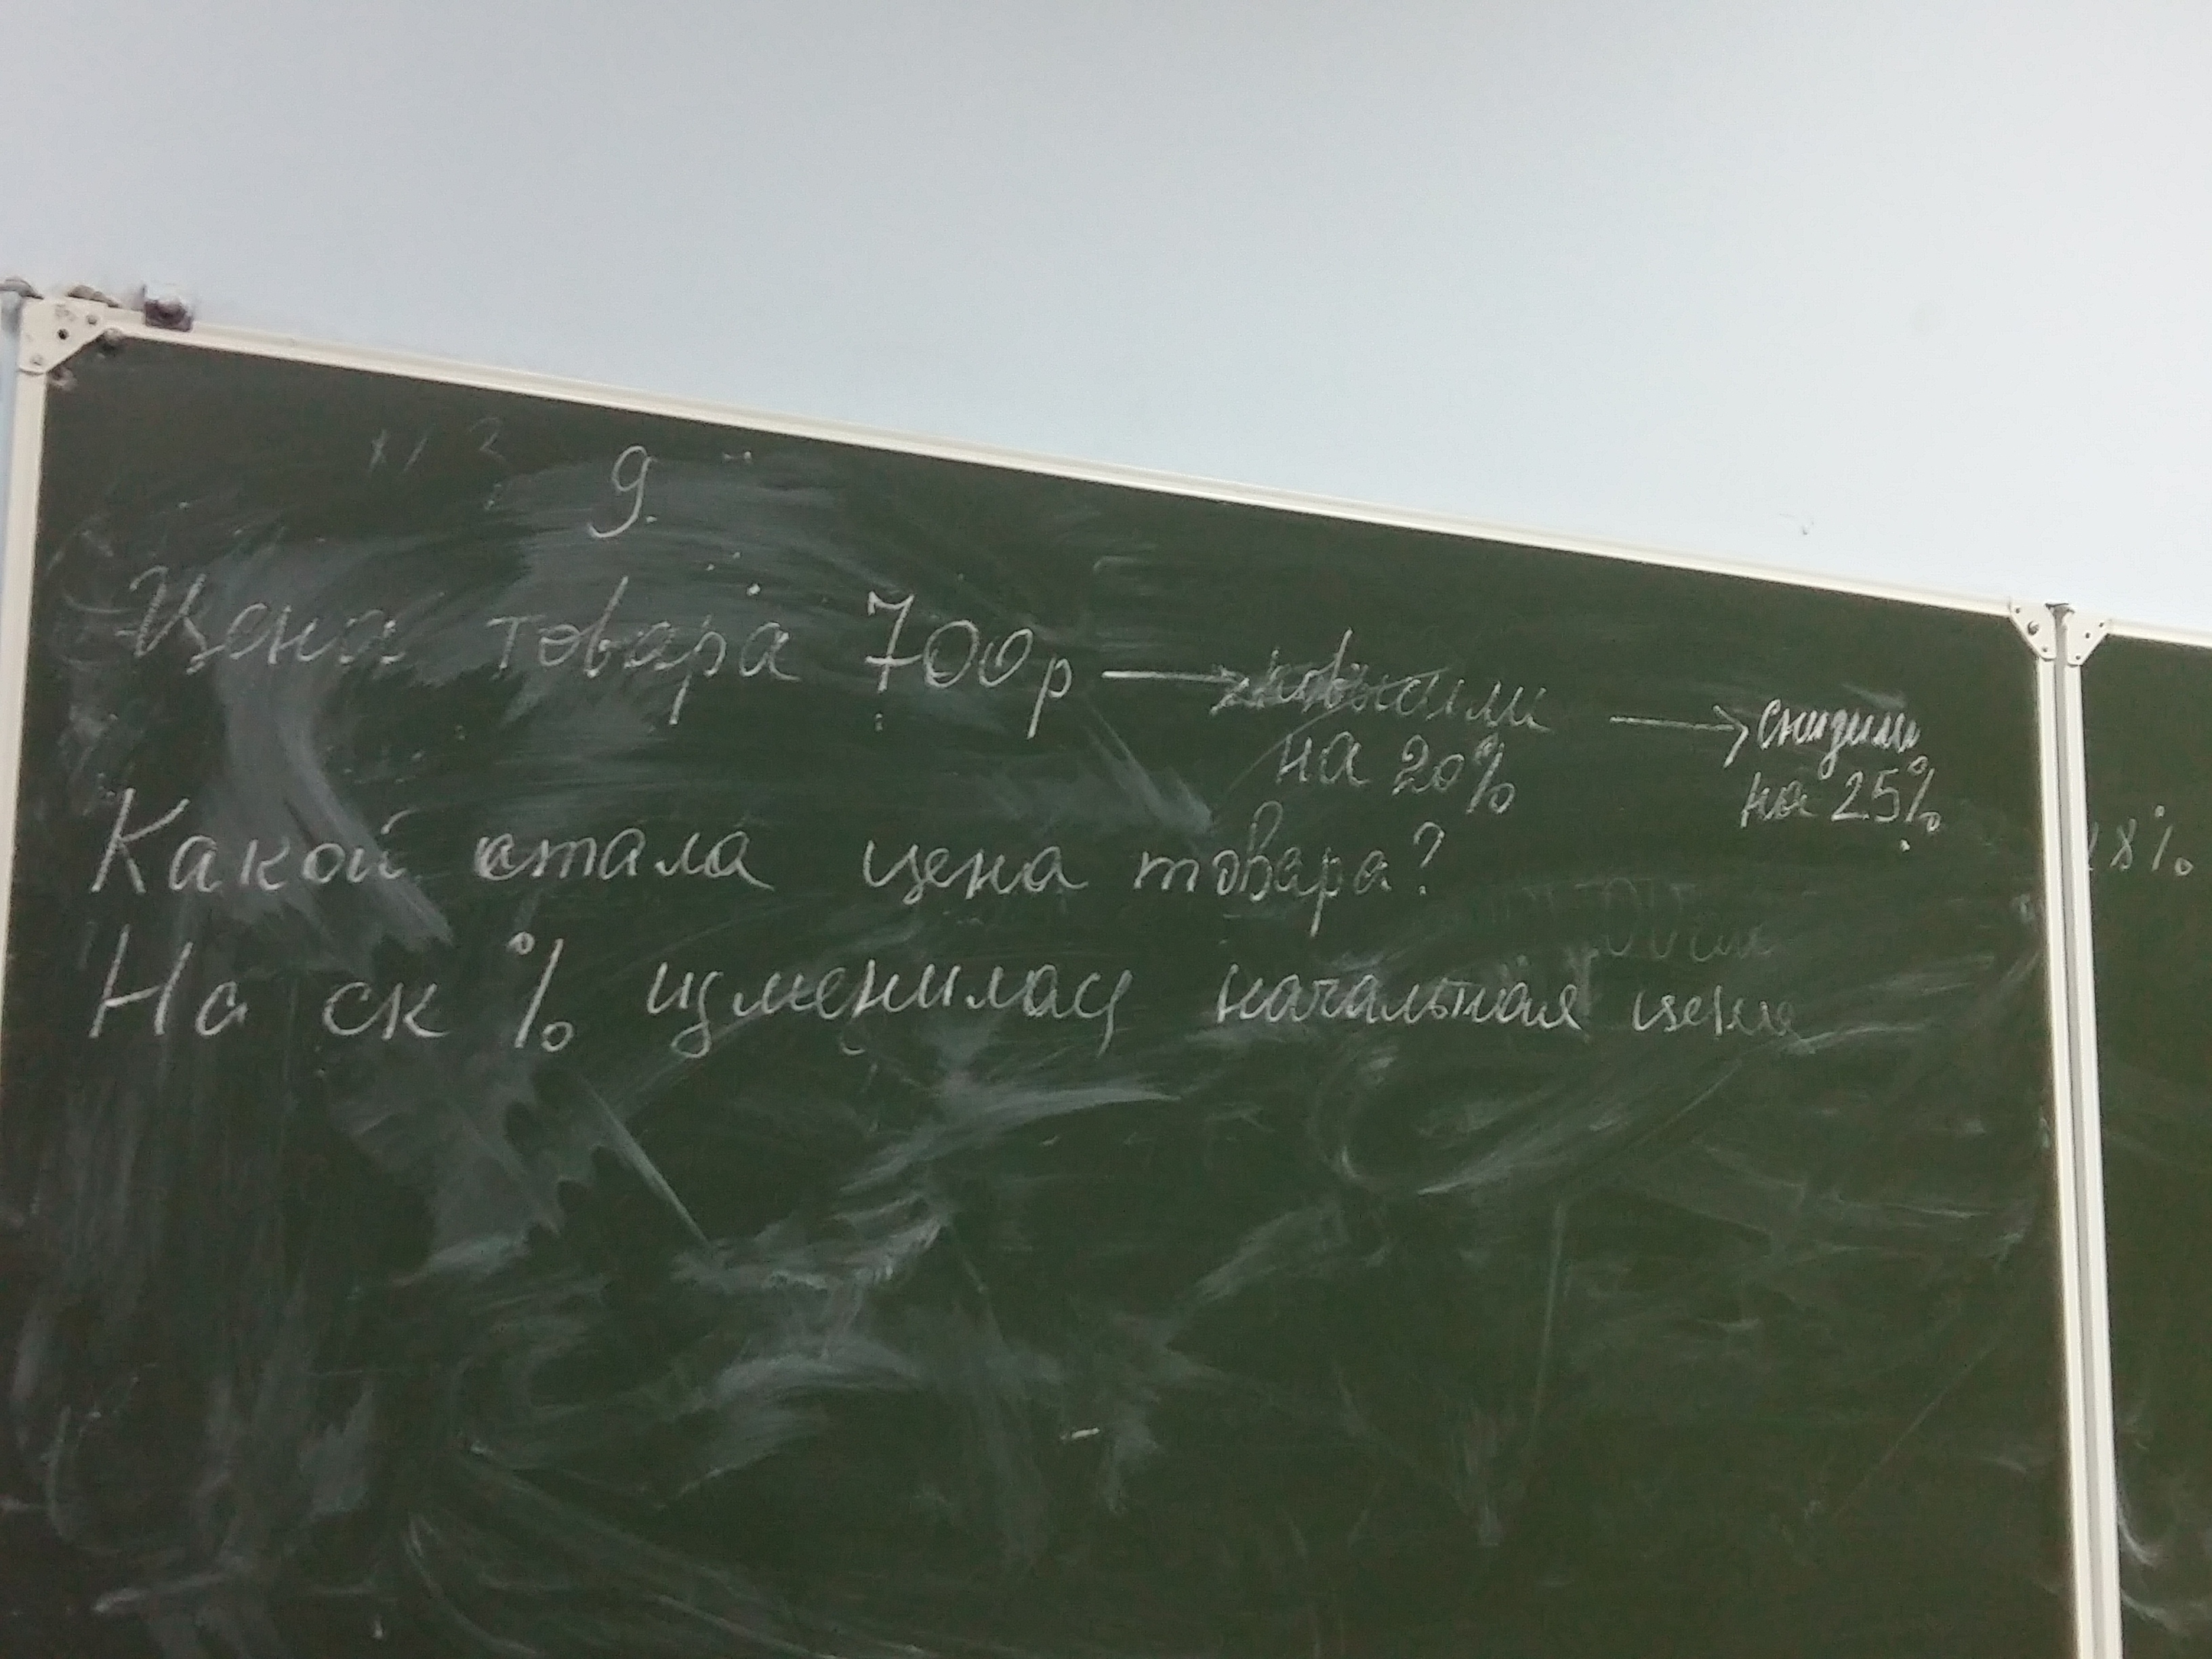 9.
Цена товара 700р → повысили → снизили
на 20% на 25%
Какой стала цена товара?
На ск % изменилась начальная цена
8%